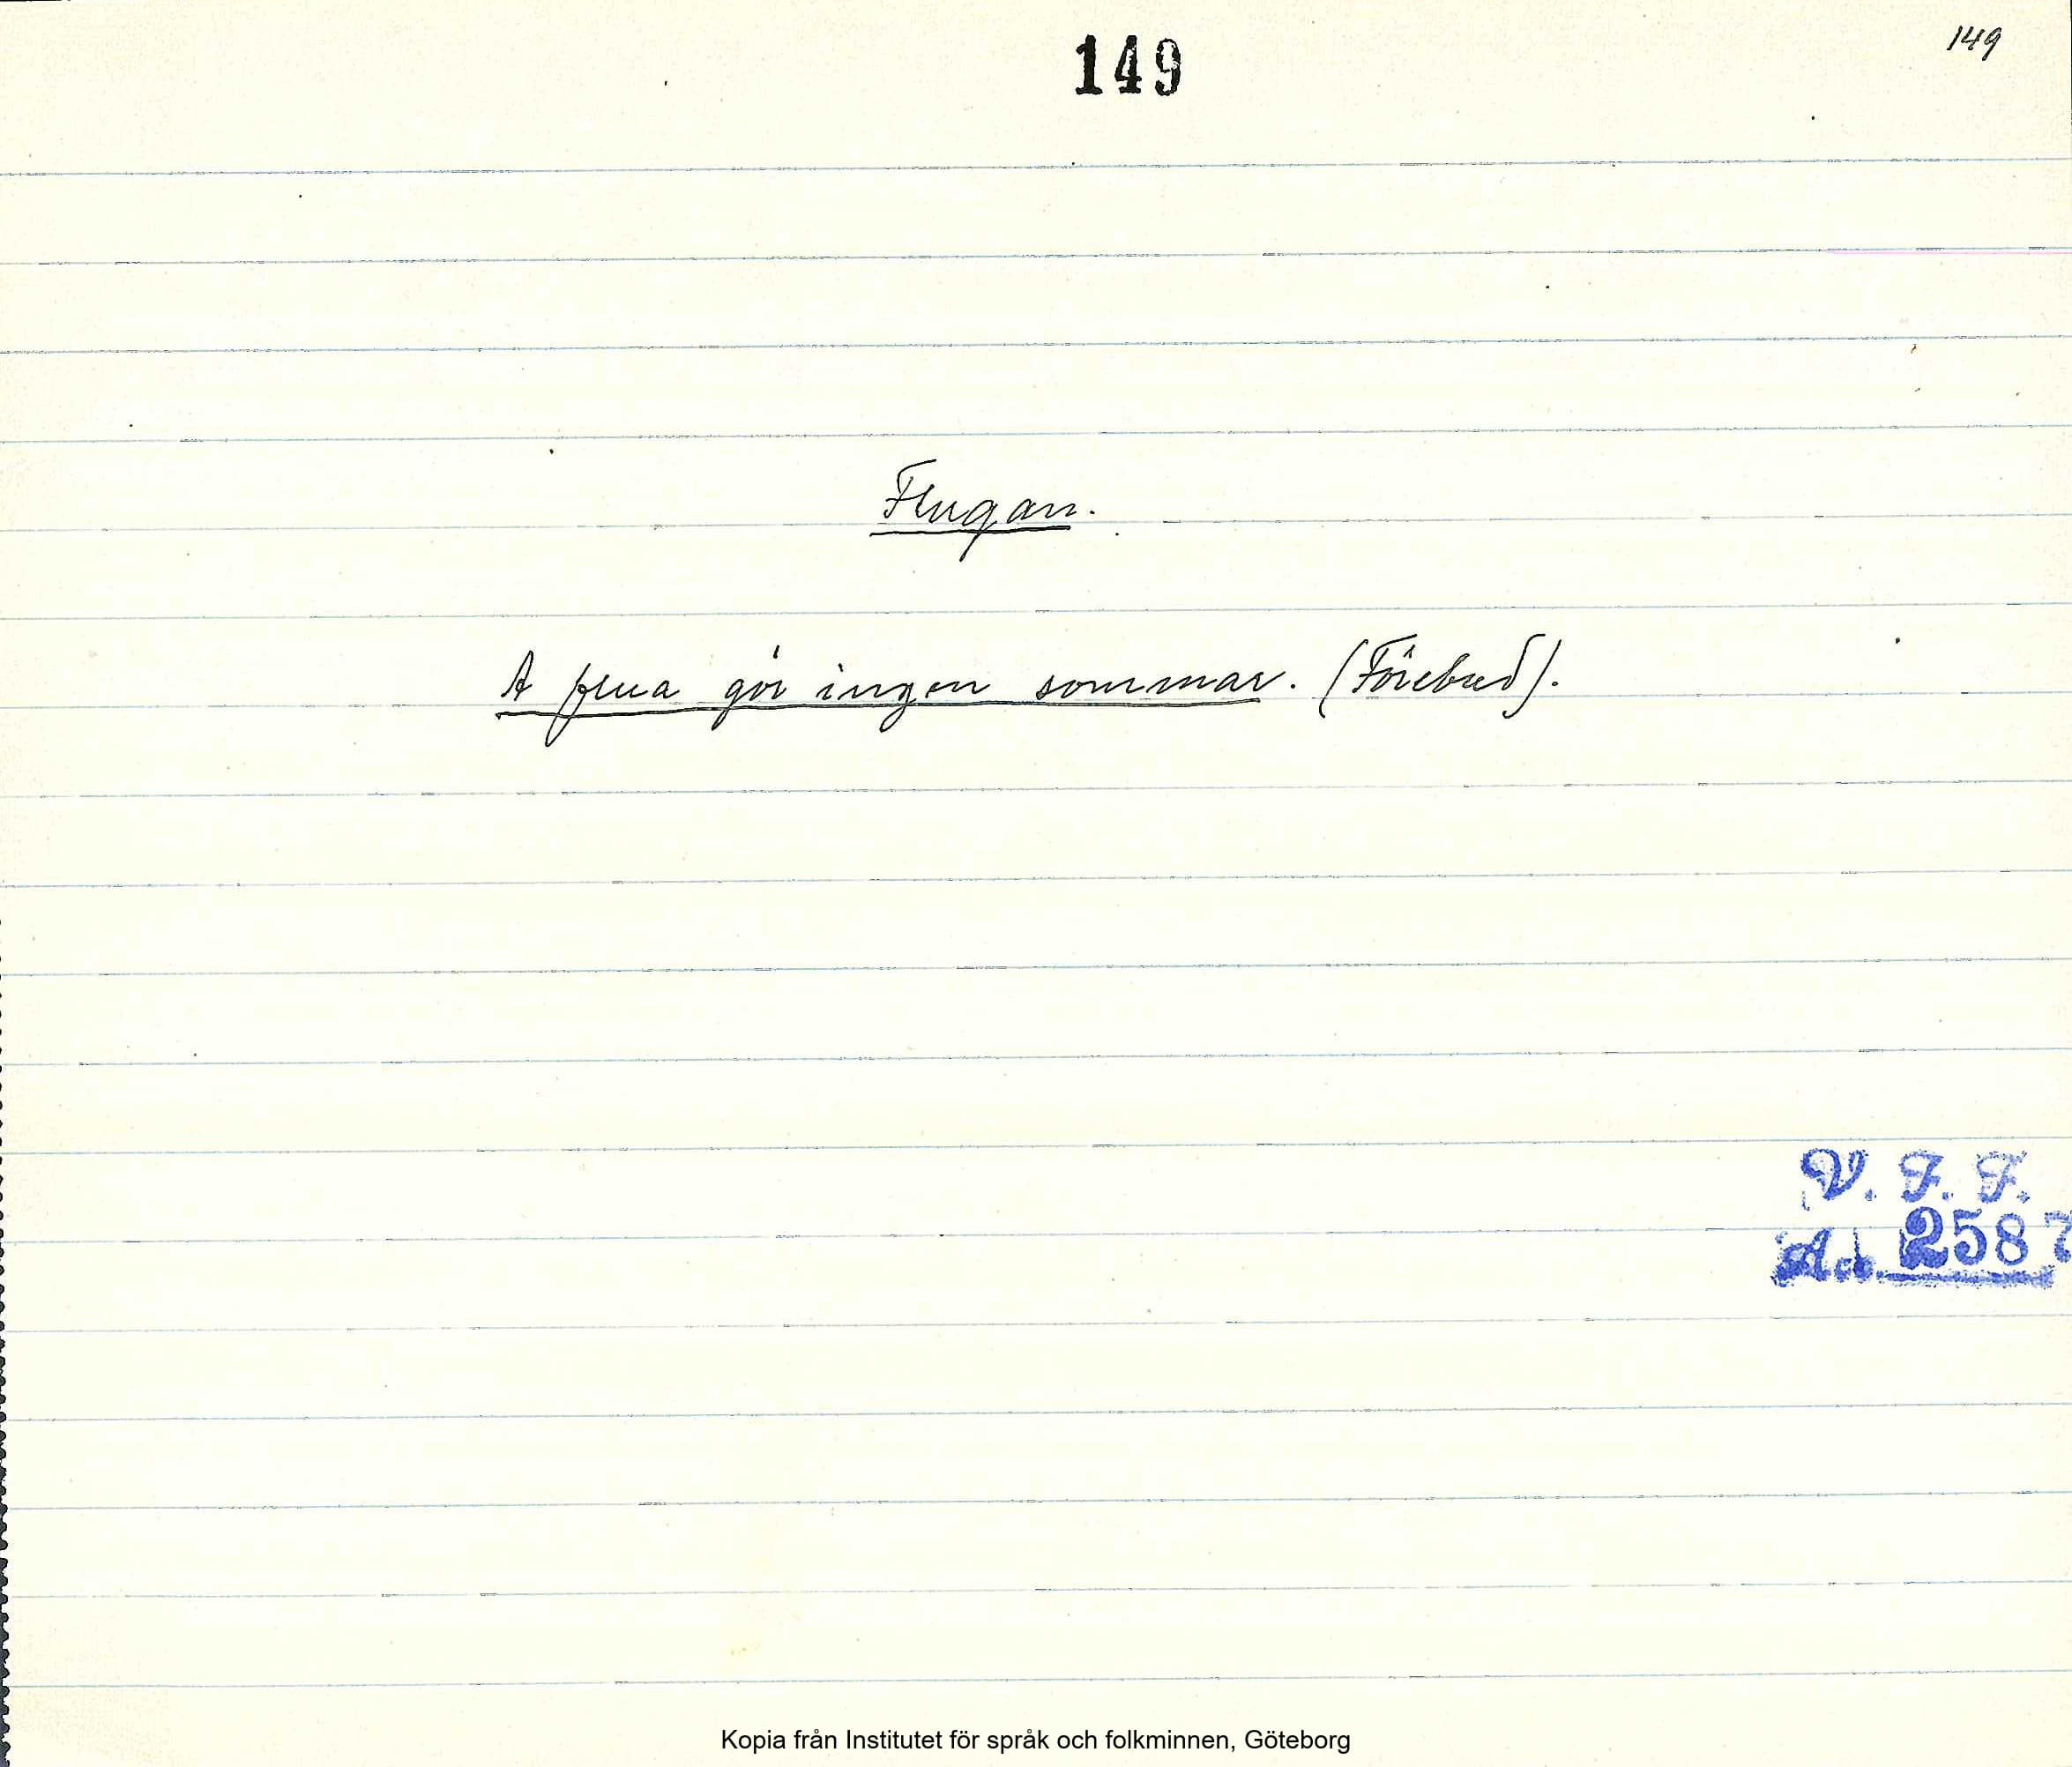 149
149
Flugan.
A flua gör ingen sommar. (Förebud).
V. F. F.
Ac. 2587
Kopia från Institutet för språk och folkminnen, Göteborg